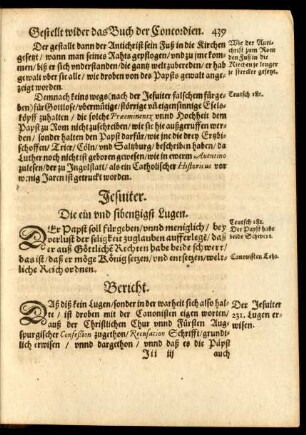 Gestellt wider das Buch der Concordien. 439
Der gestalt dann der Antichrist sein Fuß in die Kirchen
gesetzt / wann man seines Rahts gepflogen / vnd zu jme kom-
men / biß er sich vnderstanden / die gantz welt zubereden / er hab
gewalt vber sie alle / wie droben von des Papsts gewalt ange-
zeigt worden.
Wie der Anti-
christ zum Rom
den Fuß in die
Kirchen je lenger
je herrlicher gesetzt.
Demnach keins wegs (nach der Jesuiter falschem fürge-
ben) für Gottlose / vbermütige / störrige vñ eigensinnige Esels-
köpff zuhalten / die solche Præeminentz vnnd Hochheit dem
Papst zu Rom nicht zuschreiben / wie sie hie außgeruffen wer-
den / sonder halten den Papst darfür / wie jne die drey Ertzbi-
schoffen / Trier / Cöln vnd Saltzburg / beschreiben haben / da
Luther noch nicht ist geboren gewesen / wie in ewerm Auentino
zulesen / der zu Ingolstatt / als ein Catholischer Historicus vor
wenig Jaren ist getruckt worden.
Teutsch 181.
Jesuiter.
Die ein vnd sibentzigst Lugen.
Der Papst soll fürgeben / vnnd menniglich / bey
verlust der seligkeit zuglauben aufferlegē / daß
er auß Göttliche Rechten habe beide schwert /
das ist / daß er möge König setzen / vnd entsetzen / welt-
liche Reich ordnen.
Teutsch 181.
Der Papst habe
beide Schwert.
Canonisten Lehr.
Bericht.
Daß diß kein Lugen / sonder in der warheit sich also hal-
te / ist droben mit der Canonisten eigen worten /
auß der Christlichen Chur vnnd Fürsten Aug-
spurgischer Confession zugethon / Recusation Schrifft / gründt-
lich erwisen / vnnd dargethon / vnnd daß es die Päpst
Der Jesuiter
231. Lugen er-
wisen.
Iii iij auch